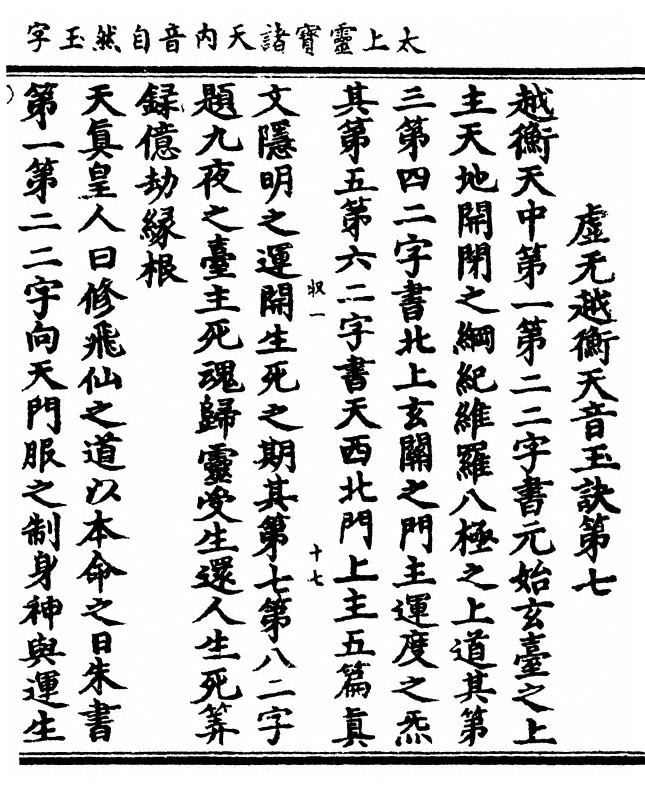 太上靈寳諸天內音自然玉字
虛无越衡天音玉訣第七
越衡天中第一第二二字書元始玄臺之上
主天地開閉之綱紀維羅八極之上道其第
三第四二字書北上玄關之門主運度之炁
其第五第六二字書天西北門上主五篇眞
収一
十七
文隱明之運開生死之期其第七第八二字
題九夜之臺主死魂歸靈受生還人生死筭
録億劫縁根
天眞皇人曰修飛仙之道以本命之日朱書
第一第二二字向天門服之制身神與運生